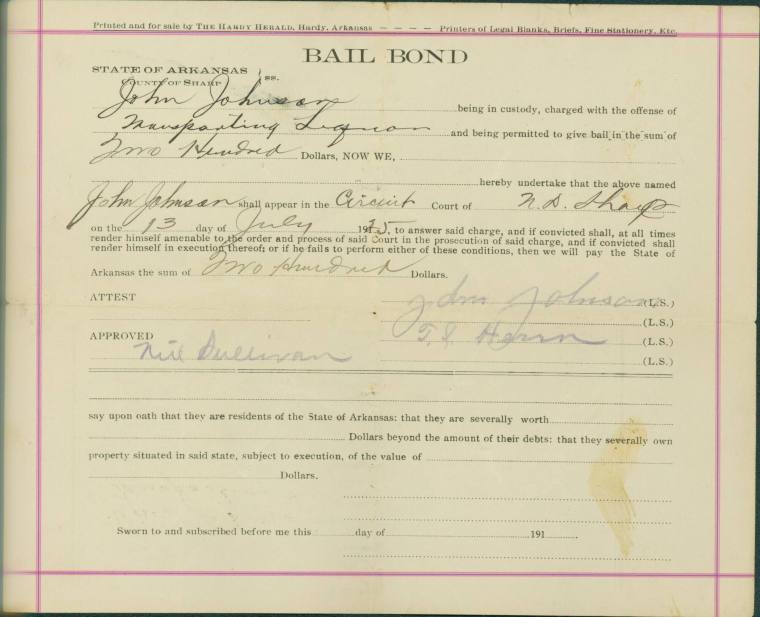 Printed and for sale by THE HARDY HERALD, Hardy, Arkansas — — — — Printers of Legal Blanks, Briefs, Fine Stationery, Etc.
BAIL BOND
STATE OF ARKANSAS
COUNTY OF SHARP } ss.
John Johnson being in custody, charged with the offense of
Transporting Liquor and being permitted to give bail in the sum of
Two Hundred Dollars, NOW WE,
hereby undertake that the above named
John Johnson shall appear in the Circuit Court of N.D. Sharp
on the 13 day of July 1925, to answer said charge, and if convicted shall, at all times
render himself amenable to the order and process of said Court in the prosecution of said charge, and if convicted shall
render himself in execution thereof; or if he fails to perform either of these conditions, then we will pay the State of
Arkansas the sum of Two Hundred Dollars.
ATTEST John Johnson (L.S.)
(L.S.)
APPROVED T.S. Herrn (L.S.)
Neil Sullivan (L.S.)
say upon oath that they are residents of the State of Arkansas: that they are severally worth
Dollars beyond the amount of their debts: that they severally own
property situated in said state, subject to execution, of the value of
Dollars.
Sworn to and subscribed before me this day of 191